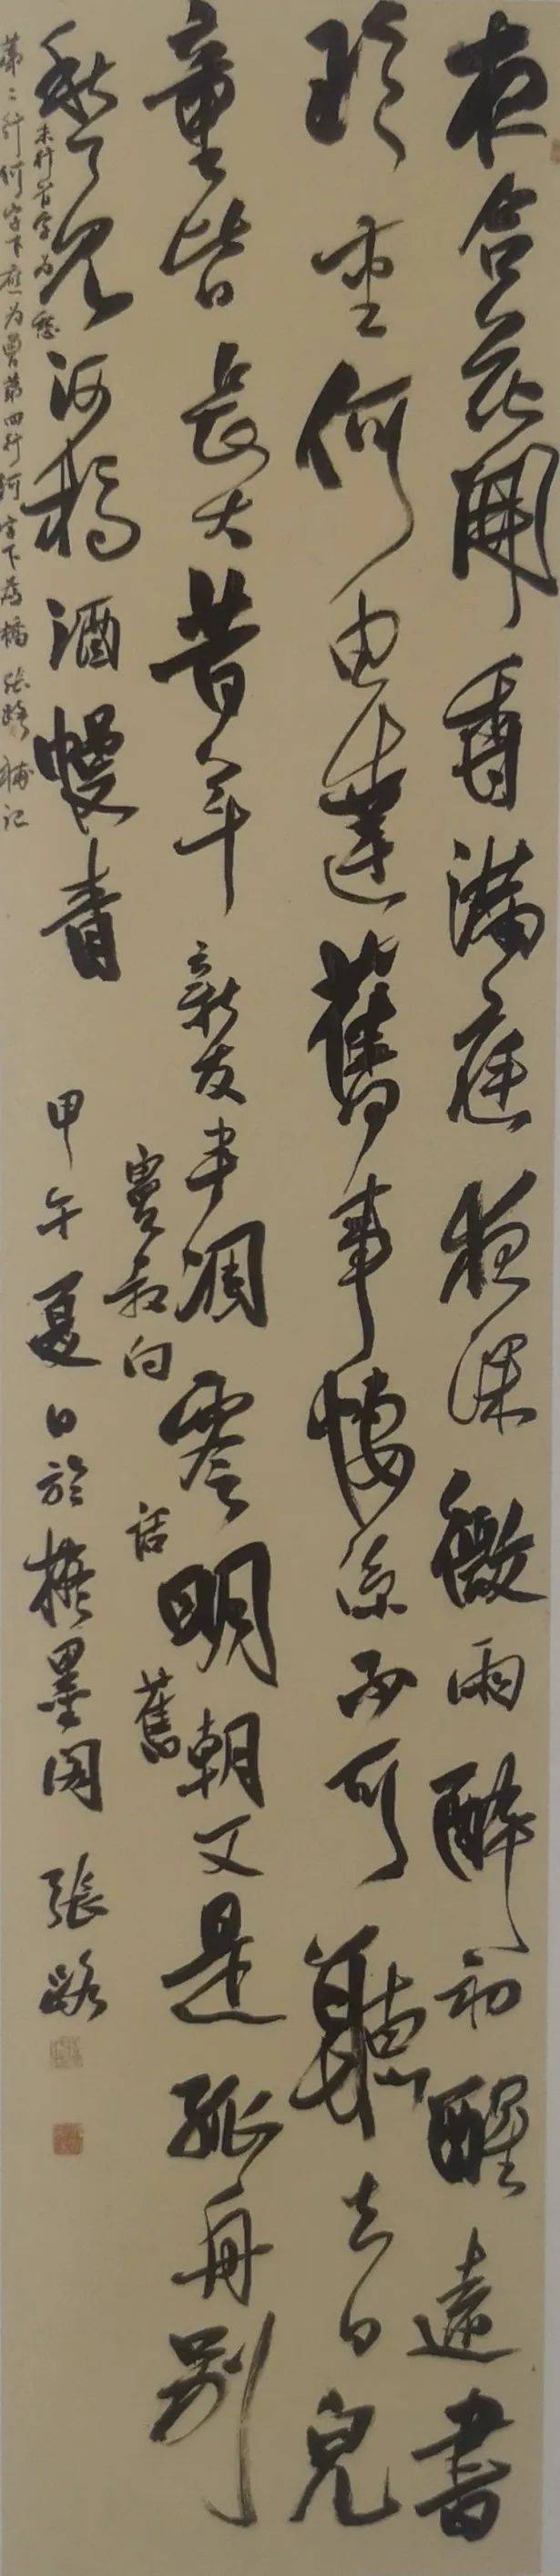 夜合花開香滿庭夜深微雨醉初醒遠書
珍重何由達舊事悽涼不可聽去日兒
童皆長大昔年親友半凋零明朝又是孤舟別
竇叔向 話舊
愁見河橋酒幔青
甲午夏日於墨 張路
末行首字為愁
第二行何字下應為曾第四行河字下為橋張路補記